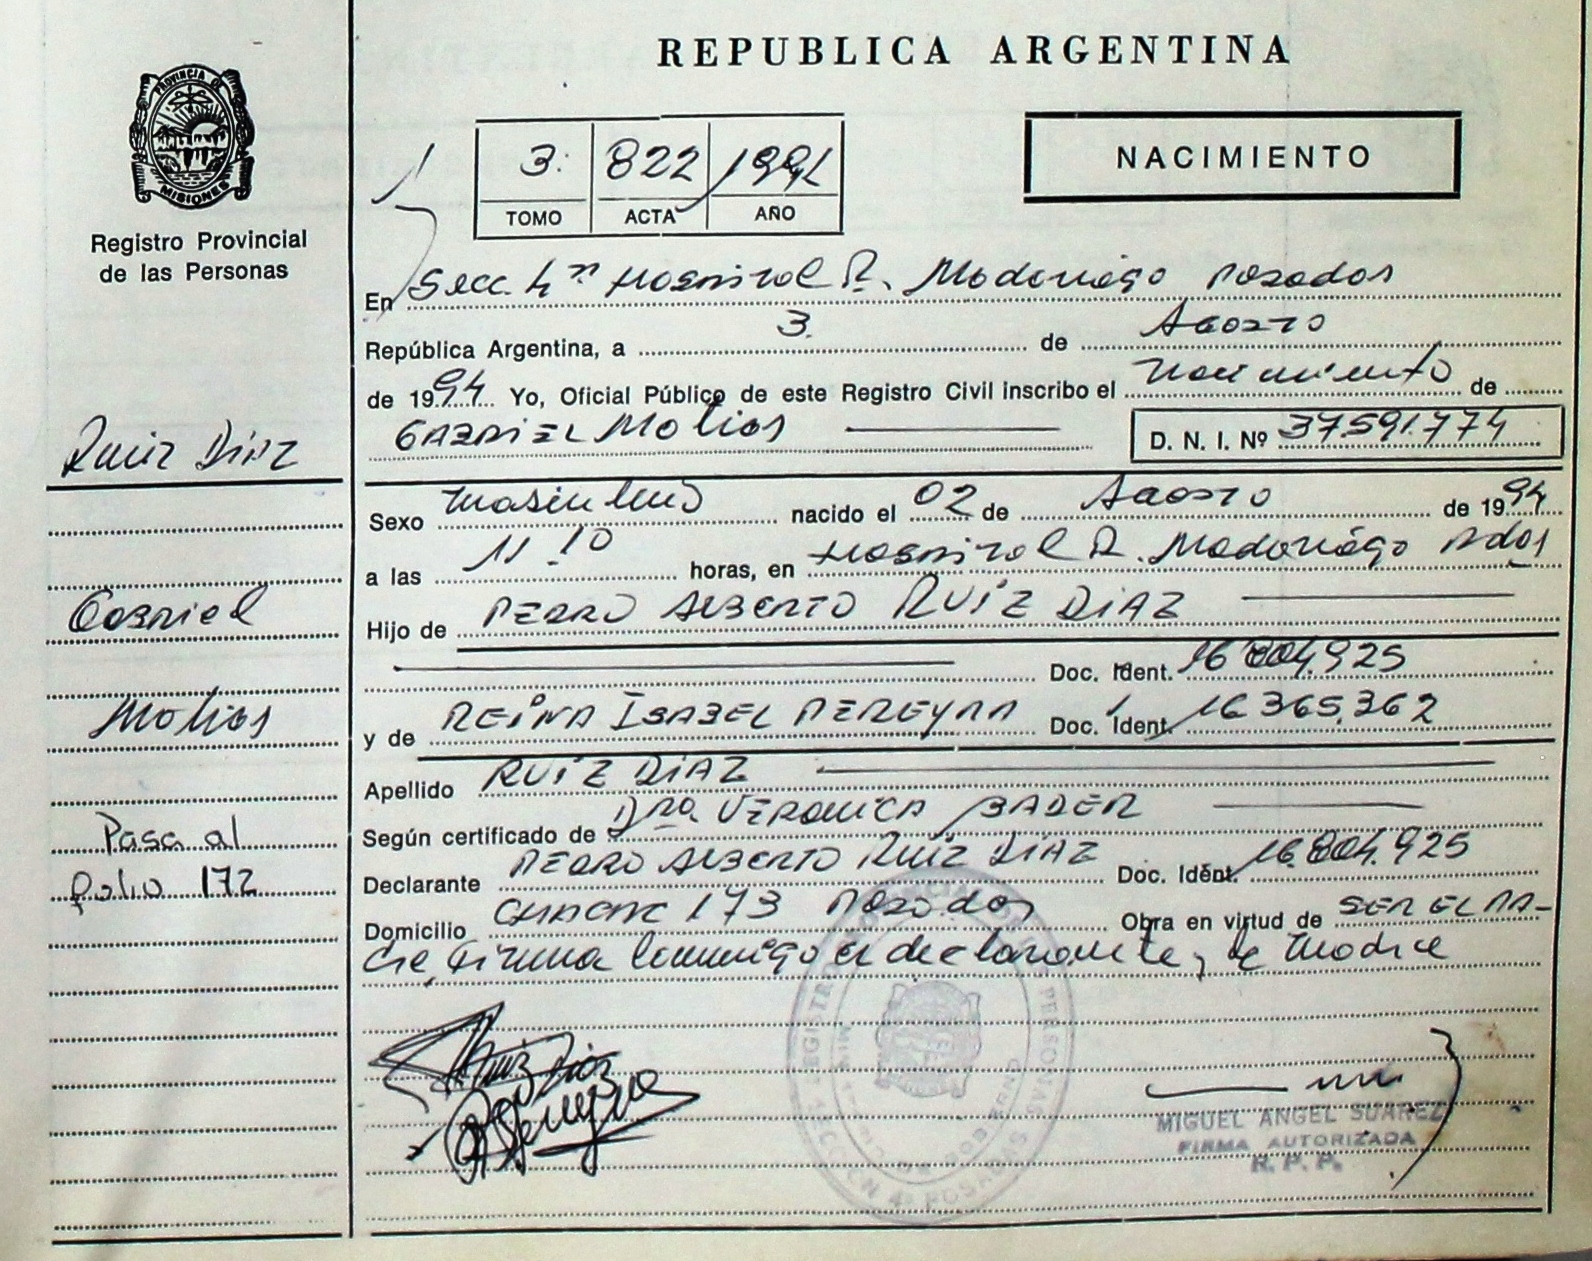 REPUBLICA ARGENTINA
PROVINCIA DE
MISIONES
Registro Provincial
de las Personas
3. 822 1994
TOMO ACTA AÑO
NACIMIENTO
En Secc. 4ª Hospital R. Madariaga Posadas
República Argentina, a 3. de Agosto
de 1994 Yo, Oficial Público de este Registro Civil inscribo el Nacimiento de
GABRIEL Matias D. N. I. Nº 37.591.774
Ruiz Diaz
Sexo Masculino nacido el 02 de Agosto de 1994
a las 11.10 horas, en Hospital R. Madariaga Pdas
Gabriel
Hijo de PEDRO ALBERTO RUIZ DIAZ
Doc. Ident. 16.804.925
Matias
y de REINA ISABEL PEREYRA Doc. Ident. 16.365.362
Apellido RUIZ DIAZ
Según certificado de Dra. VERONICA BADER
Pasa al
folio 172
Declarante PEDRO ALBERTO RUIZ DIAZ Doc. Idént. 16.804.925
Domicilio 173 Posadas Obra en virtud de SER EL PA-
dre, Firma conmigo el declarante, y la Madre
Ruiz Diaz
Pereyra
REGISTRO PROVINCIAL DE LAS PERSONAS
MINISTERIO DE GOBIERNO
SECCION 4ª POSADAS
MIGUEL ANGEL SUAREZ
FIRMA AUTORIZADA
R. P. P.